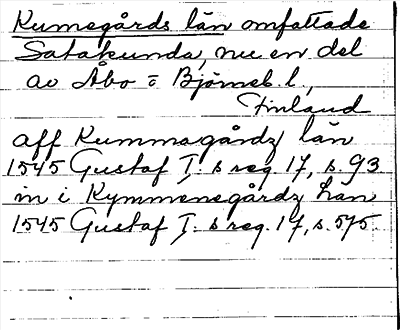 Kumegårds län omfattade
Satakunda, nu en del
av Åbo o Björneb. l.,
Finland
aff Kummagårdz län
1545 Gustaf I. s reg. 17, s. 93
in i Kymmenegårdz han
1545 Gustaf I. s reg. 17, s. 575.